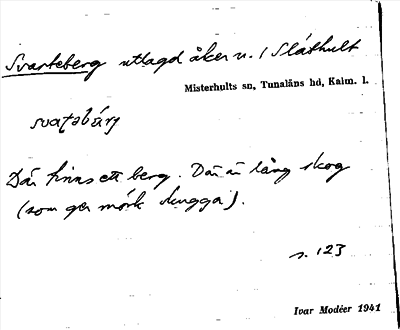 Svarteberg utlagd åker u. / Slåthult
Misterhults sn, Tunaläns hd, Kalm. l.
svaʈəbárj
Där finns ett berg. Där är lång skog
(som ger mörk skugga).
s. 123
Ivar Modéer 1941